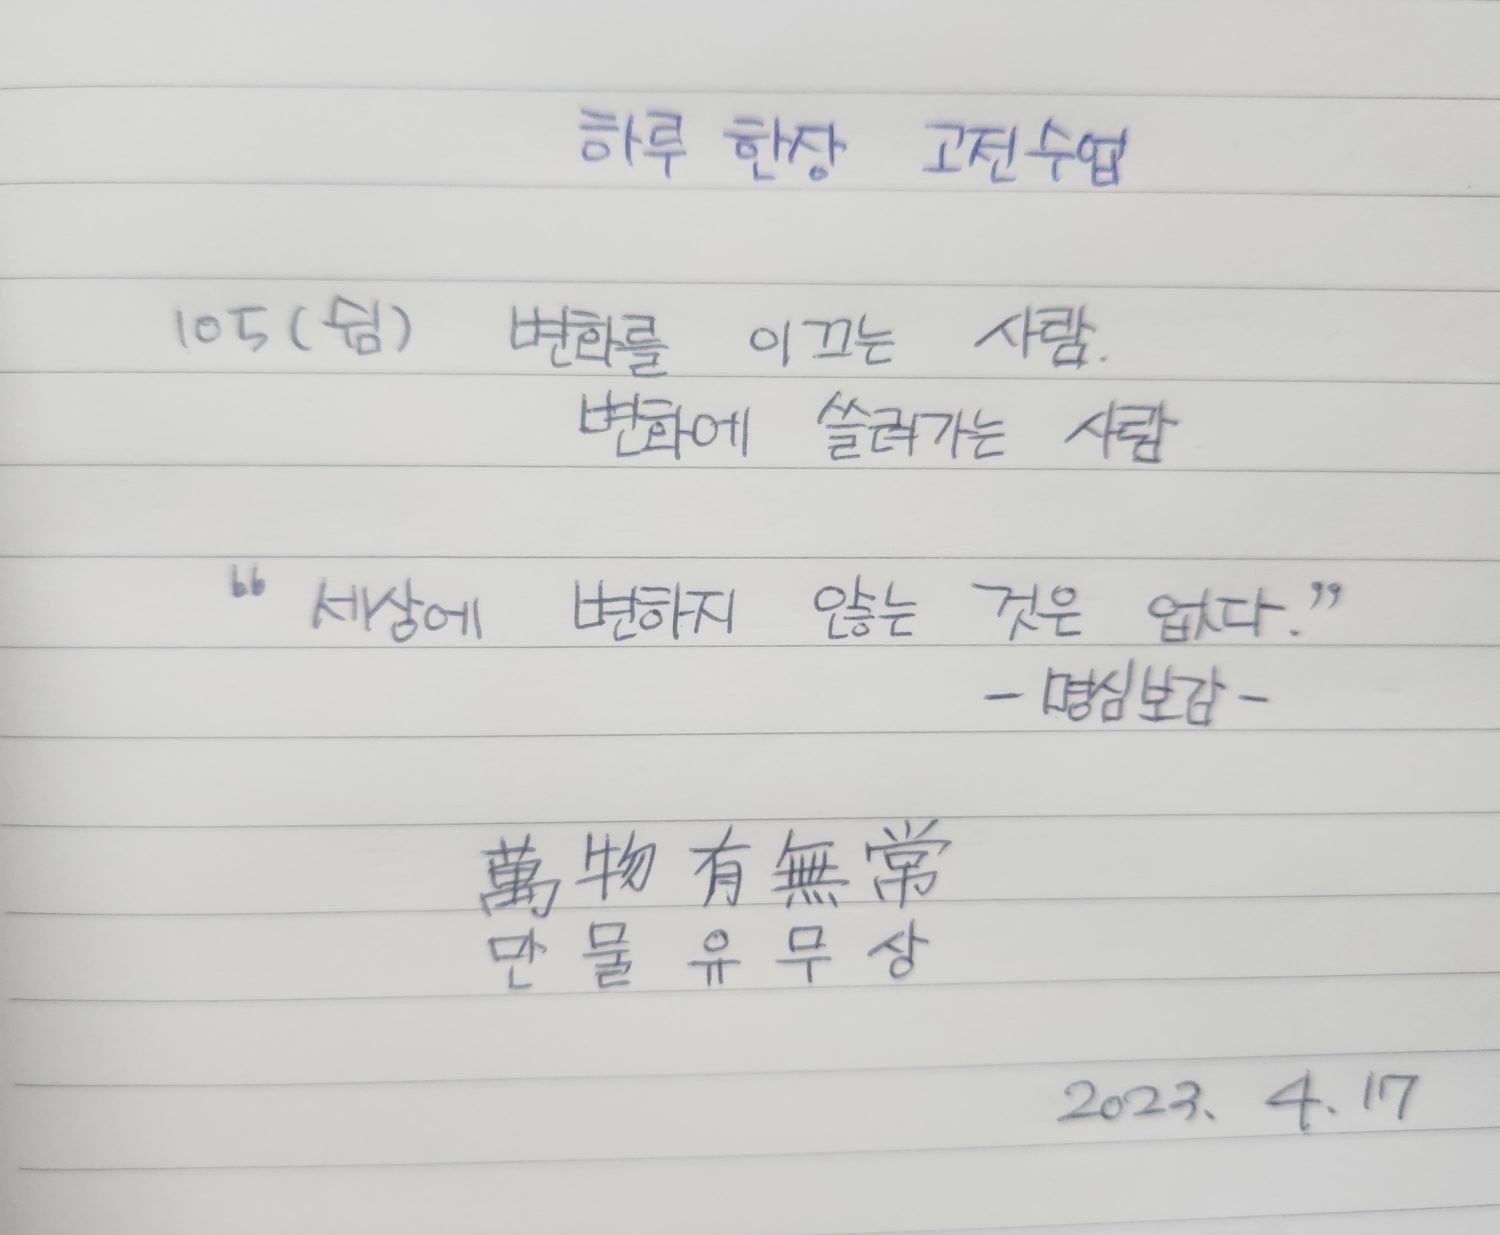 하루 한장 고전수업
105(쉼) 변화를 이끄는 사람.
변화에 쓸려가는 사람
“세상에 변하지 않는 것은 없다.”
- 명심보감 -
萬物有無常
만물유무상
2023. 4. 17